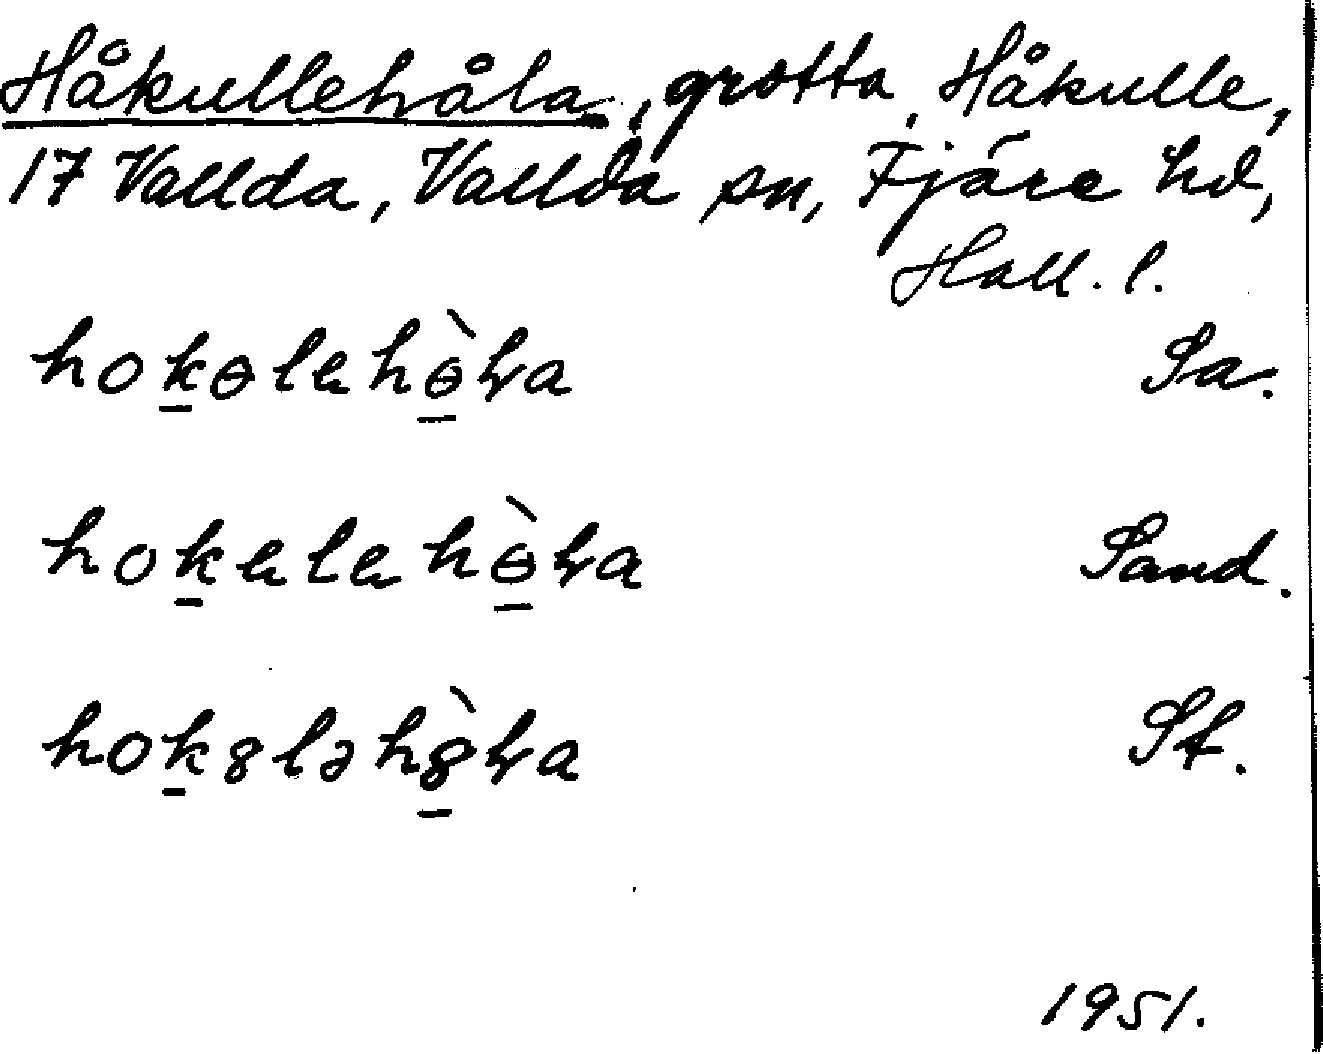 Håkullehåla, grotta, Håkulle,
17 Vallda, Vallda sn, Fjäre hd,
Hall. l.
hok̲ɵlehɵ̲̀ɫa Sa.
hok̲elehɵ̲̀ɫa Sand.
hok̲8ləh8̲̀ɫa St.
1951.